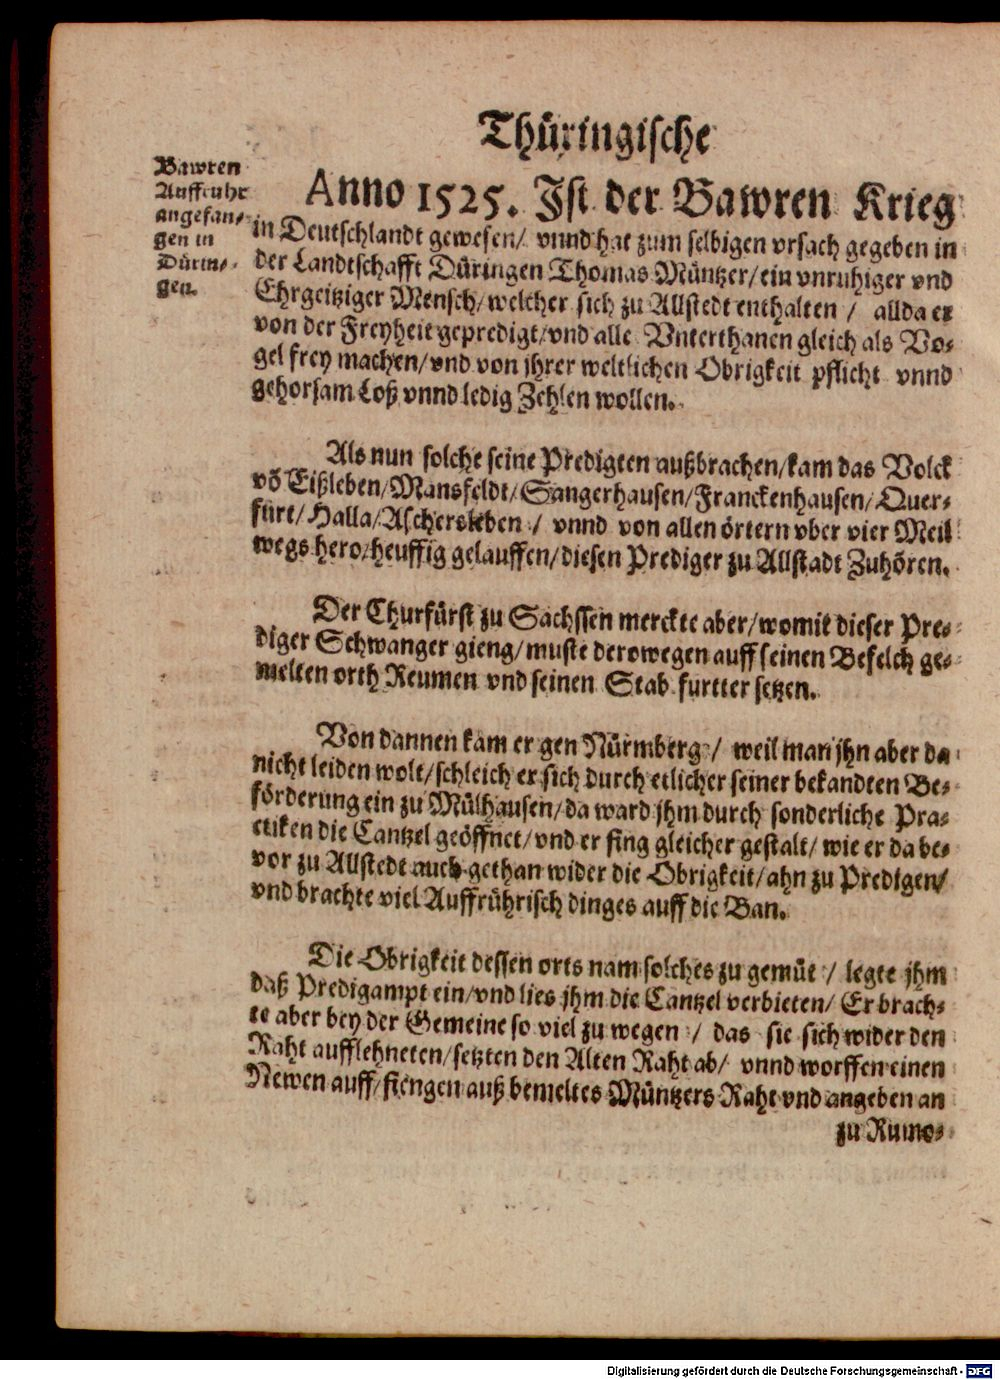 Thüringische
Bawren
Auffruhr
angefan⸗
gen in
Dürin⸗
gen.
Anno 1525. Ist der Bawren Krieg
in Deutschlandt gewesen/ vnnd hat zum selbigen vrsach gegeben in
der Landtschafft Düringen Thomas Müntzer/ein vnruhiger vnd
Ehrgeitziger Mensch/welcher sich zu Allstedt enthalten / allda er
von der Freyheit gepredigt/vnd alle Vnterthanen gleich als Vo⸗
gel frey machen/vnd von jhrer weltlichen Obrigkeit pflicht vnnd
gehorsam Loß vnnd ledig Zehlen wollen.
Als nun solche seine Predigten außbrachen/kam das Volck
võ Eißleben/Mansfeldt/Sangerhausen/Franckenhausen/Quer⸗
fürt/Halla/Aschersleben / vnnd von allen örtern vber vier Meil
wegs hero/heuffig gelauffen/diesen Prediger zu Allstadt Zuhören.
Der Churfürst zu Sachssen merckte aber/womit dieser Pre⸗
diger Schwanger gieng/muste derowegen auff seinen Befelch ge⸗
melten orth Reumen vnd seinen Stab furtter setzen.
Von dannen kam er gen Nürmberg / weil man jhn aber da
nicht leiden wolt/schleich er sich durch etlicher seiner bekandten Be⸗
förderung ein zu Mülhausen/da ward jhm durch sonderliche Pra⸗
ctiken die Cantzel geöffnet/vnd er fing gleicher gestalt/ wie er da be⸗
vor zu Allstedt auch gethan wider die Obrigkeit/ahn zu Predigen/
vnd brachte viel Auffrührisch dinges auff die Ban.
Die Obrigkeit dessen orts nam solches zu gemüt / legte jhm
daß Predigampt ein/vnd lies jhm die Cantzel verbieten/ Er brach⸗
te aber bey der Gemeine so viel zu wegen / das sie sich wider den
Raht aufflehneten/setzten den Alten Raht ab/ vnnd worffen einen
Newen auff/fiengen auß bemeltes Müntzers Raht vnd angeben an
zu Rumo⸗
Digitalisierung gefördert durch die Deutsche Forschungsgemeinschaft - DFG